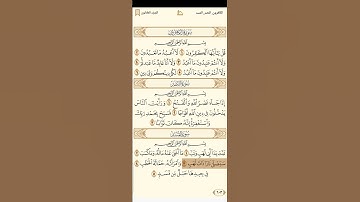 الكافرون، النصر، المسد
سُورَةُ الكَافِرُونَ
بِسْمِ اللَّهِ الرَّحْمَٰنِ الرَّحِيمِ
قُلْ يَٰٓأَيُّهَا ٱلْكَٰفِرُونَ ١ لَآ أَعْبُدُ مَا تَعْبُدُونَ ٢
وَلَآ أَنتُمْ عَٰبِدُونَ مَآ أَعْبُدُ ٣ وَلَآ أَنَا۠ عَابِدٌ مَّا عَبَدتُّمْ ٤
وَلَآ أَنتُمْ عَٰبِدُونَ مَآ أَعْبُدُ ٥ لَكُمْ دِينُكُمْ وَلِىَ دِينِ ٦
سُورَةُ النَّصْرِ
بِسْمِ اللَّهِ الرَّحْمَٰنِ الرَّحِيمِ
إِذَا جَآءَ نَصْرُ ٱللَّهِ وَٱلْفَتْحُ ١ وَرَأَيْتَ ٱلنَّاسَ
يَدْخُلُونَ فِى دِينِ ٱللَّهِ أَفْوَاجًا ٢ فَسَبِّحْ بِحَمْدِ رَبِّكَ
وَٱسْتَغْفِرْهُ إِنَّهُۥ كَانَ تَوَّابًۢا ٣
سُورَةُ المَسَدِ
بِسْمِ اللَّهِ الرَّحْمَٰنِ الرَّحِيمِ
تَبَّتْ يَدَآ أَبِى لَهَبٍ وَتَبَّ ١ مَآ أَغْنَىٰ عَنْهُ مَالُهُۥ وَمَا كَسَبَ ٢
سَيَصْلَىٰ نَارًا ذَاتَ لَهَبٍ ٣ وَٱمْرَأَتُهُۥ حَمَّالَةَ ٱلْحَطَبِ ٤
فِى جِيدِهَا حَبْلٌ مِّن مَّسَدٍۭ ٥
٦٠٣